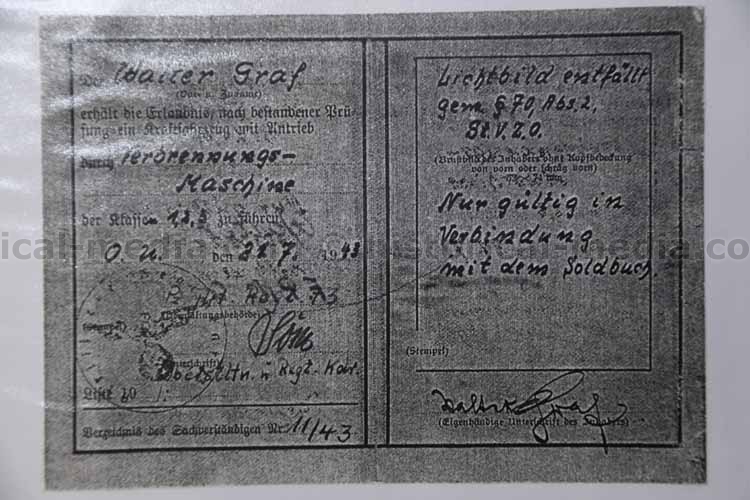 Der Walter Graf
(Vor- u. Zuname)
erhält die Erlaubnis, nach bestandener Prü-
fung ein Kraftfahrzeug mit Antrieb
durch Verbrennungs-
Maschine
der Klassen 1,2,3 zu führen
O. U. den 21.7. 1943
Rgt. 73
(Stempel)
(Unterschrift)
Oberstltn. u. Regt.-Kdr.
Liste
Verzeichnis des Sachverständigen Nr. 11/43
Lichtbild entfällt
gem. § 70, Abs. 2,
St.V.Z.O.
(Brustbild des Inhabers ohne Kopfbedeckung
von vorn oder schräg vorn)
Nur gültig in
Verbindung
mit dem Soldbuch.
(Stempel)
Walter Graf
(Eigenhändige Unterschrift des Inhabers)